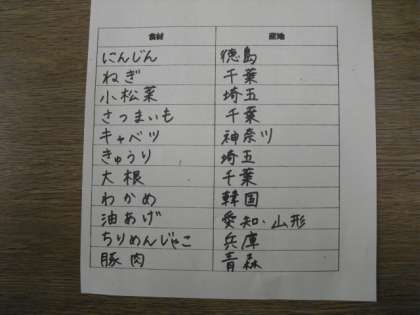 食材 産地
にんじん 徳島
ねぎ 千葉
小松菜 埼玉
さつまいも 千葉
キャベツ 神奈川
きゅうり 埼玉
大根 千葉
わかめ 韓国
油あげ 愛知・山形
ちりめんじゃこ 兵庫
豚肉 青森